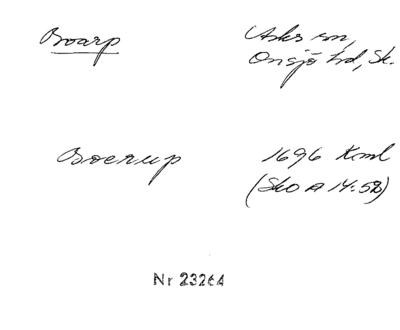 Boarp
Asks sn,
Onsjö hd, Sk.
Boerup
1696 Kml
(Sko A 14:58)
Nr 23264